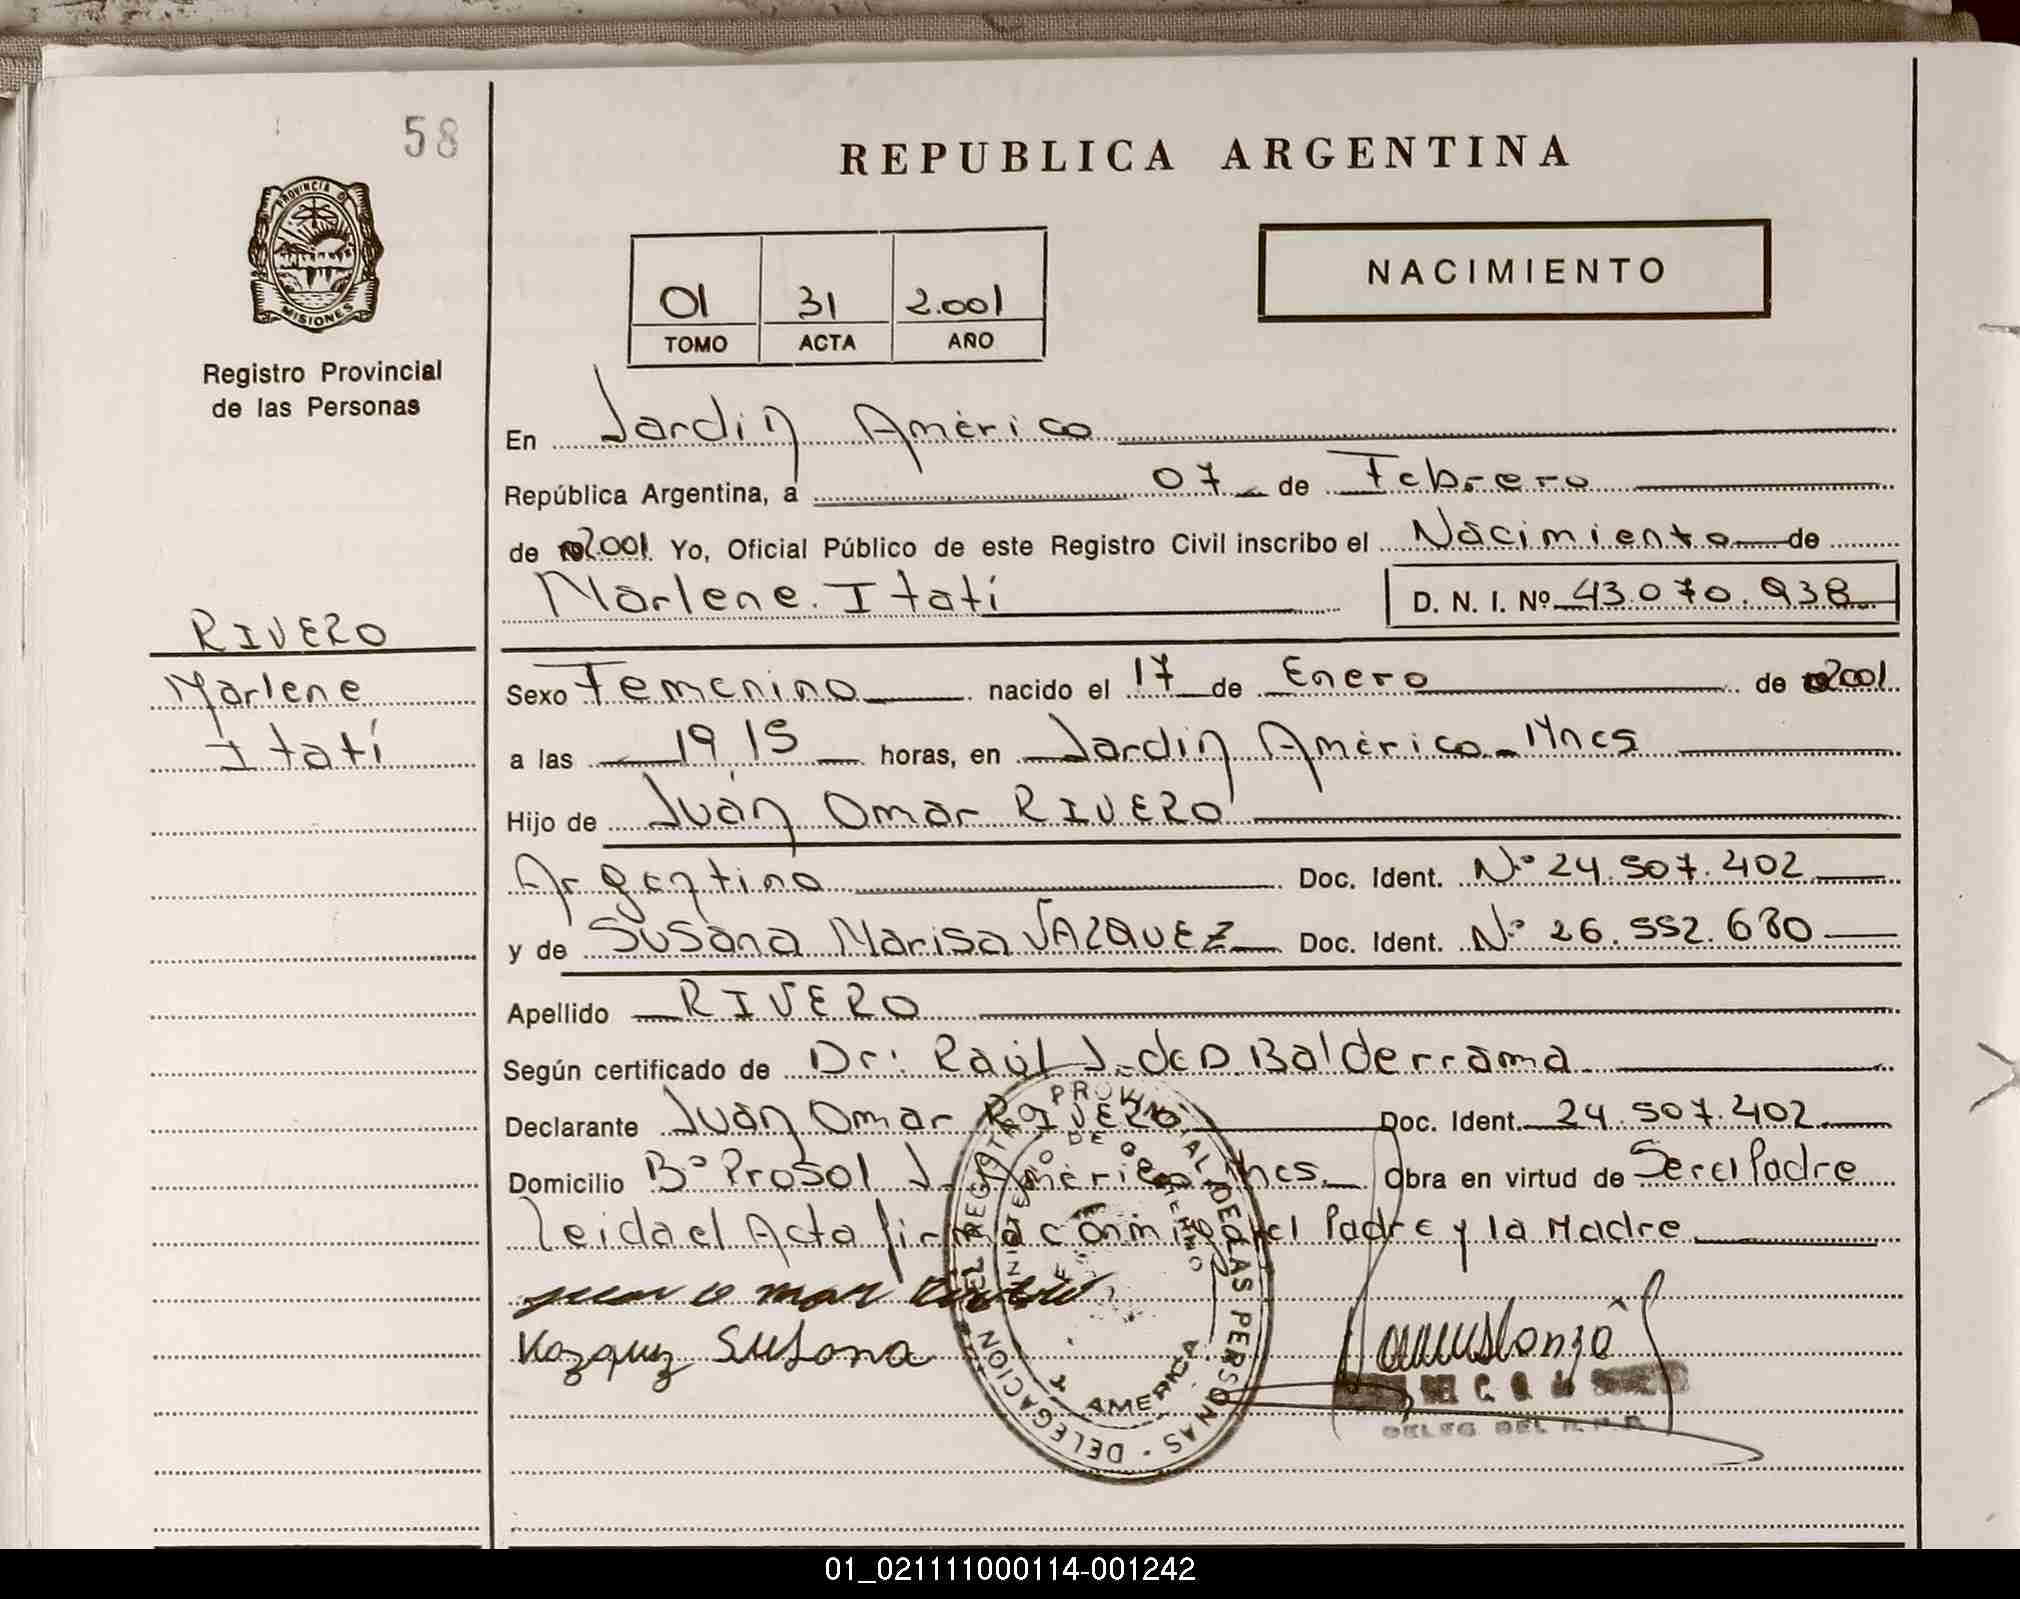 58
REPUBLICA ARGENTINA
PROVINCIA DE
MISIONES
Registro Provincial
de las Personas
NACIMIENTO
01 31 2.001
TOMO ACTA AÑO
En Jardin América
República Argentina, a 07 de Febrero
de 2001 Yo, Oficial Público de este Registro Civil inscribo el Nacimiento de
Marlene Itatí D. N. I. Nº 43.070.938
RIVERO
Marlene
Itatí
Sexo Femenino nacido el 17 de Enero de 2001
a las 19,15 horas, en Jardin América - Mnes
Hijo de Juan Omar RIVERO
Argentino Doc. Ident. Nº 24.507.402
y de Susana Marisa VAZQUEZ Doc. Ident. Nº 26.552.680
Apellido RIVERO
Según certificado de Dr: Raúl J. de D. Balderrama
Declarante Juan Omar RIVERO Doc. Ident. 24.507.402
Domicilio Bº Prosol J. América Mnes. Obra en virtud de Ser el Padre
Leida el Acta firma conmigo el Padre y la Madre
Vazquz Susana
DELEGACION DEL REGISTRO PROVINCIAL DE LAS PERSONAS
MINISTERIO DE GOBIERNO
J. AMERICA
DELEG. DEL R.P.P.
01_021111000114-001242